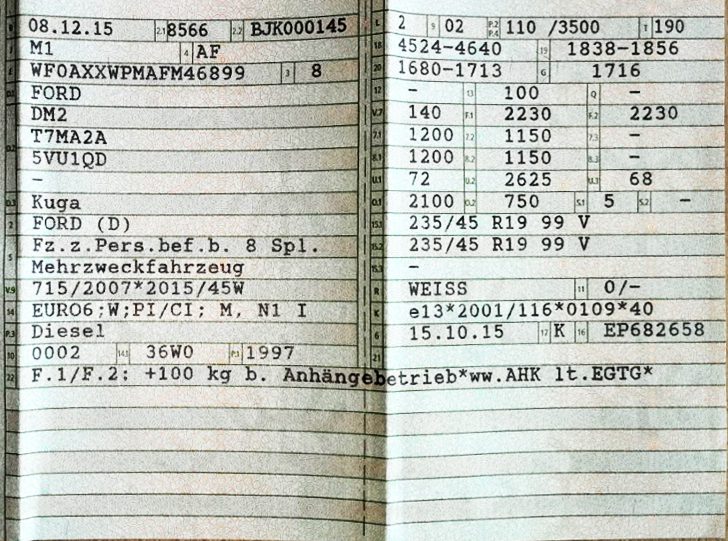 B 08.12.15 2.1 8566 2.2 BJK000145
J M1 4 AF
E WF0AXXWPMAFM46899 3 8
D.1 FORD
DM2
D.2 T7MA2A
5VU1QD
–
D.3 Kuga
2 FORD (D)
5 Fz.z.Pers.bef.b. 8 Spl.
Mehrzweckfahrzeug
V.9 715/2007*2015/45W
14 EURO6;W;PI/CI; M, N1 I
P.3 Diesel
10 0002 14.1 36W0 P.1 1997
22 F.1/F.2: +100 kg b. Anhängebetrieb*ww.AHK lt.EGTG*
L 2 9 02 P.2 P.4 110 /3500 T 190
18 4524-4640 19 1838-1856
20 1680-1713 G 1716
12 – 13 100 Q –
V.7 140 F.1 2230 F.2 2230
7.1 1200 7.2 1150 7.3 –
8.1 1200 8.2 1150 8.3 –
U.1 72 U.2 2625 U.3 68
O.1 2100 O.2 750 S.1 5 S.2 –
15.1 235/45 R19 99 V
15.2 235/45 R19 99 V
15.3 –
R WEISS 11 0/–
K e13*2001/116*0109*40
6 15.10.15 17 K 16 EP682658
21